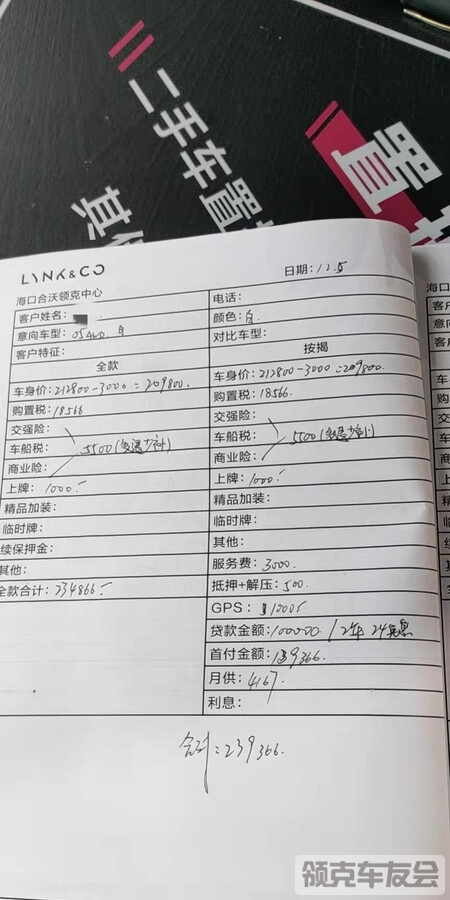 二手车置
置
其他
LYNK&CO
海口合沃领克中心 日期:12.5
客户姓名: 电话:
意向车型:05 4WD 白 颜色:白
客户特征: 对比车型:
全款 按揭
车身价:212800-3000=209800. 车身价:212800-3000=209800.
购置税:18566 购置税:18566.
交强险: 交强险:
车船税: 5500(多退少补) 车船税: 5500(多退少补)
商业险: 商业险:
上牌:1000. 上牌:1000.
精品加装: 精品加装:
临时牌: 临时牌:
续保押金: 其他:
其他: 服务费:3000
全款合计:234866. 抵押+解压:500.
GPS:1000
贷款金额:100000 / 2年 24免息
首付金额:139366.
月供:4167.
利息:
合计:239366.
领克车友会